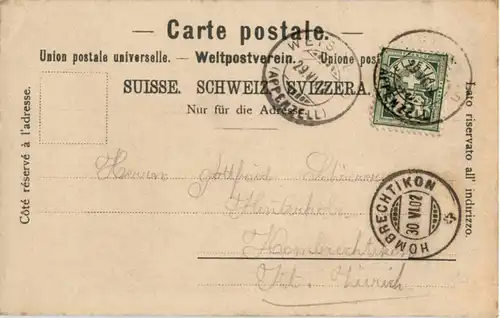 — Carte postale. —
Union postale universelle. — Weltpostverein. — Unione postale
SUISSE. SCHWEIZ. SVIZZERA.
Nur für die Adresse.
Côté réservé à l'adresse.
Lato riservato all' indirizzo.
(APPENZELL)
29 VI
HOMBRECHTIKON
30 VI 02
Herrn Gottfried
Hombrechtikon
Kt. Zürich